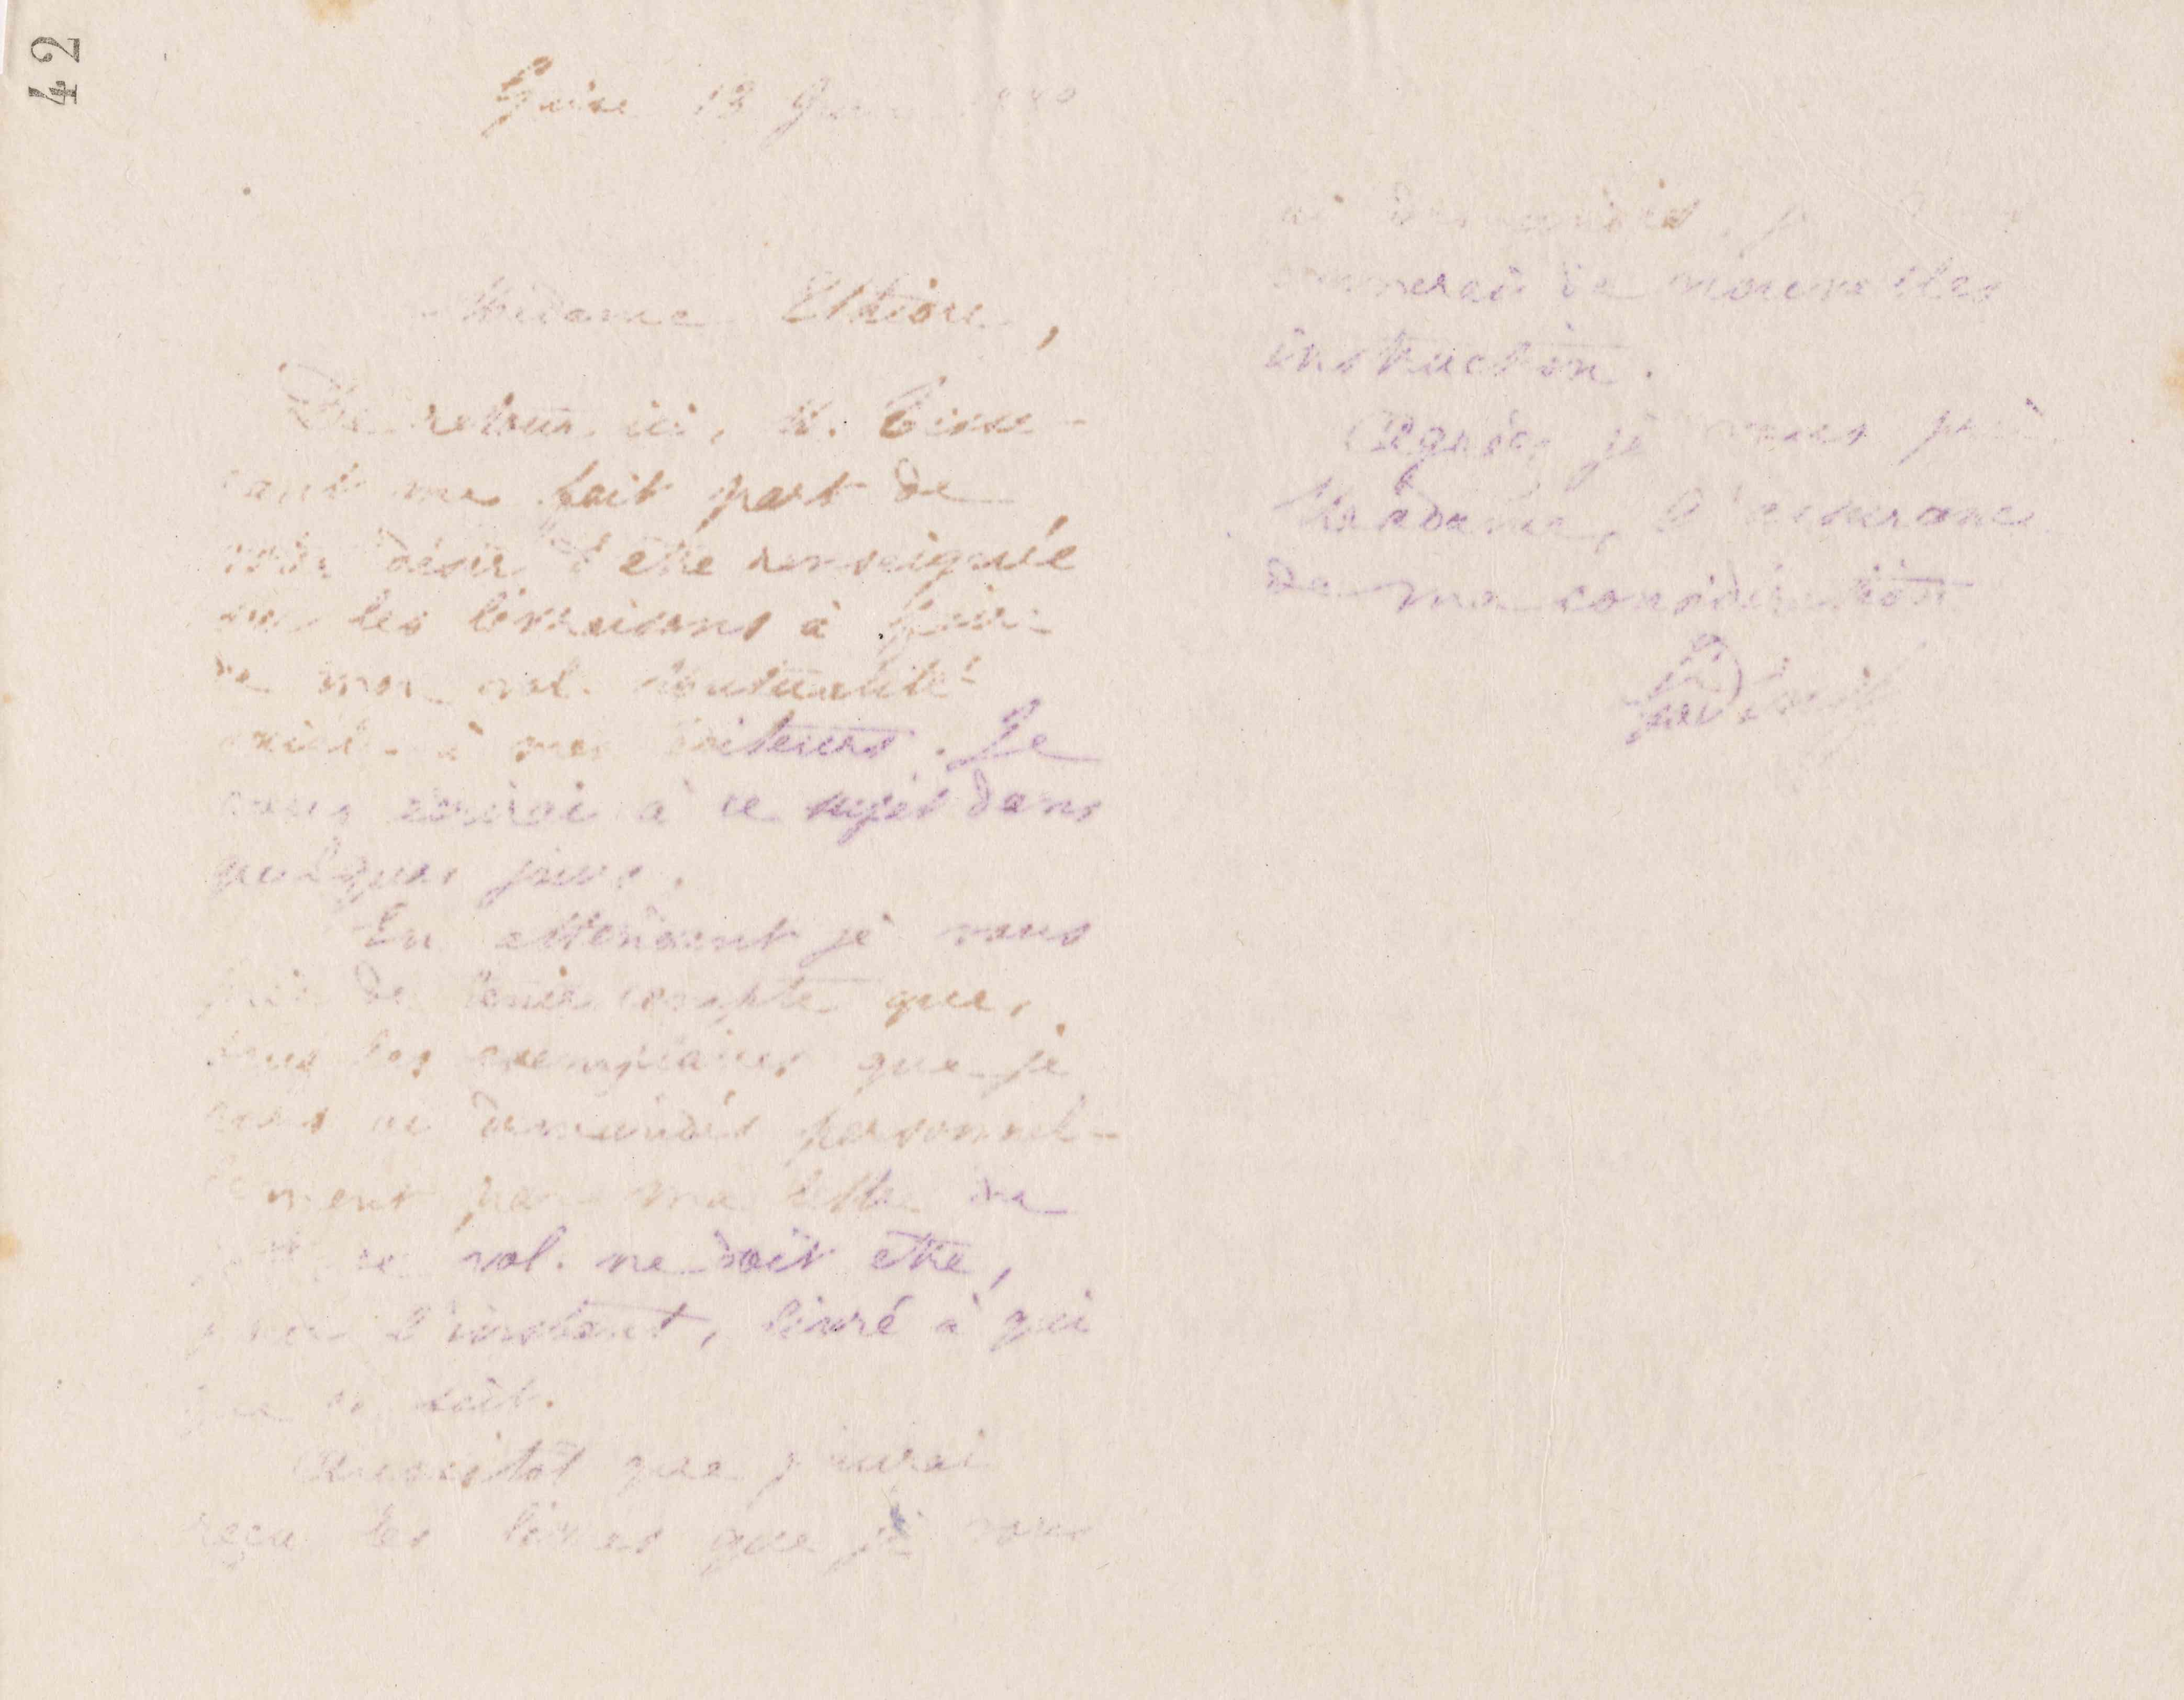 42
Guise 13
Madame Ethiou,
De retour ici, M. Tisse-
rant me fait part de
votre désir d'être renseignée
sur les livraisons à faire
de mon vol. Mutualité
à mes éditeurs. Je
vous écrirai à ce sujet dans
quelques jours.
En attendant je vous
prie de tenir compte que,
les exemplaires que je
vous ai demandés personnel-
lement par ma lettre du
ce vol. ne doit etre,
pour l'instant, livré à qui
que ce soit.
Aussitôt que j'aurai
reçu les livres que je vous
ai demandés, je
donnerai de nouvelles
instruction.
Agréez je vous prie
Madame, l'assurance
de ma considération